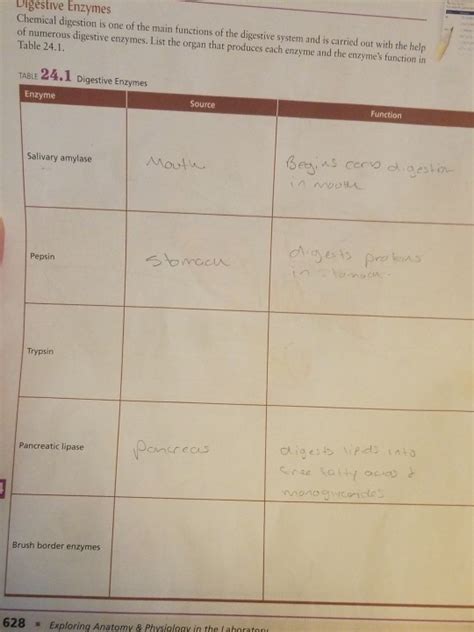 Digestive Enzymes
Chemical digestion is one of the main functions of the digestive system and is carried out with the help
of numerous digestive enzymes. List the organ that produces each enzyme and the enzyme's function in
Table 24.1.
TABLE 24.1 Digestive Enzymes
Enzyme Source Function
Salivary amylase Mouth Begins carb digestion
in mouth
Pepsin Stomach digests protons
in stomach.
Trypsin
Pancreatic lipase pancreas digests lipids into
free fatty acids &
monoglycerides
Brush border enzymes
628 Exploring Anatomy & Physiology in the Laboratory